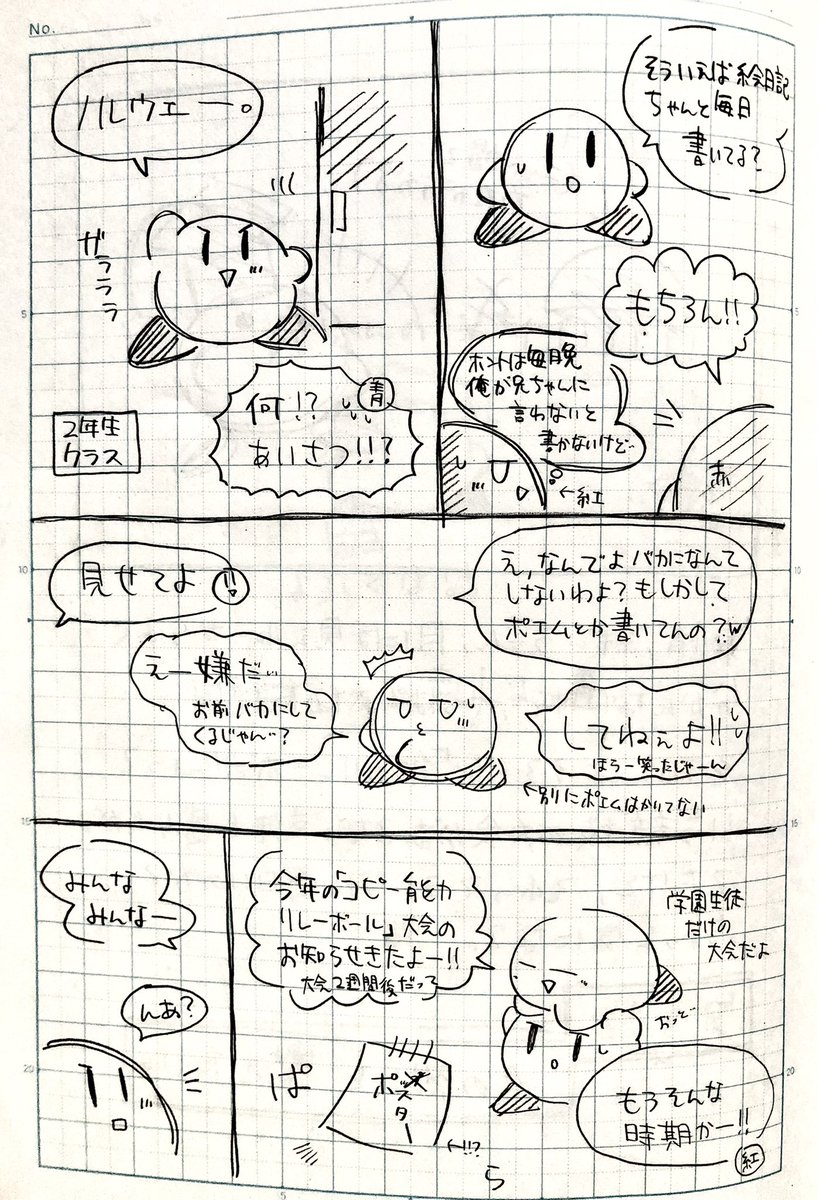 No.
そういえば絵日記
ちゃんと毎日
書いてる?
もちろん!!
ホントは毎晩
俺が兄ちゃんに
言わないと
書かないけど…
←紅
赤
ノルウェー。
ガラララ
何!?
青
あいさつ!!?
2年生
クラス
え,なんでよバカになんて
しないわよ?もしかして
ポエムとか書いてんの?w
してねぇよ!!
ほら一笑ったじゃーん
←別にポエムはかいてない
見せてよ!!
えー嫌だ…
お前バカにして
くるじゃん…?
学園生徒
だけの
大会だよ
今年の「コピー能力
リレーボール」大会の
お知らせきたよー!!
大会2週間後だって
おっと
もうそんな
時期かー!!
紅
ぱ
ポスター
←!!?
ら
みんな
みんなー
んあ?
5
10
15
20
5
10
15
20
5